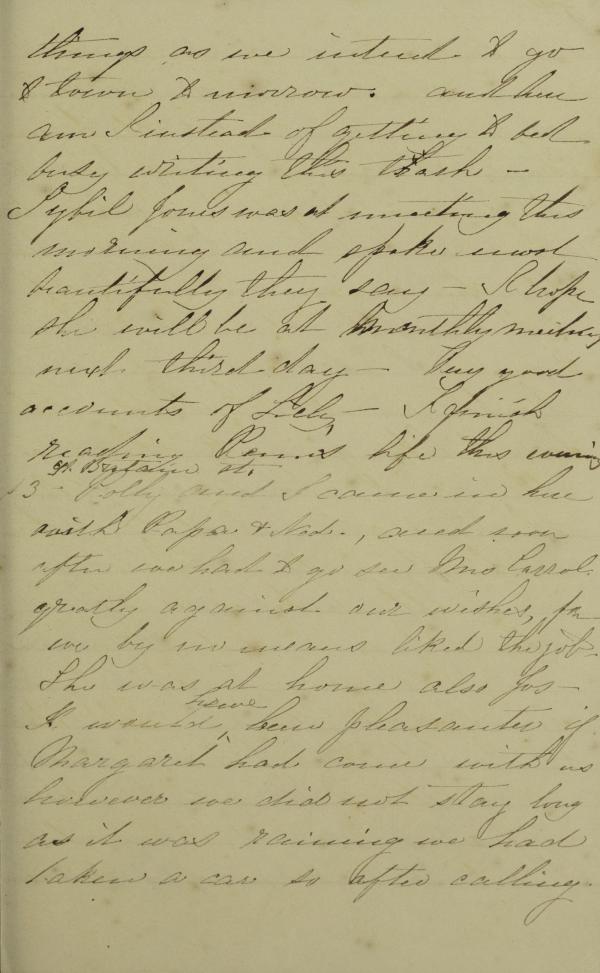 things as we intend to go
to town to morrow. and here
am I instead of getting to bed
busy writing this trash —
Sybil Jones was at meeting this
morning and spoke most
beautifully they say — I hope
she will be at Monthly meeting
next third day — Very good
accounts of — I finish
reading Penn's life this evening
Gt. Britain st.
13 — Polly and I came in here
with Papa & Ned., and soon
after we had to go see Mrs Carrol.
greatly against our wishes, for
we by no means liked the job.
She was at home also Jos —
It would have been pleasanter if
Margaret had come with us
however we did not stay long
as it was raining we had
taken a car so after calling.